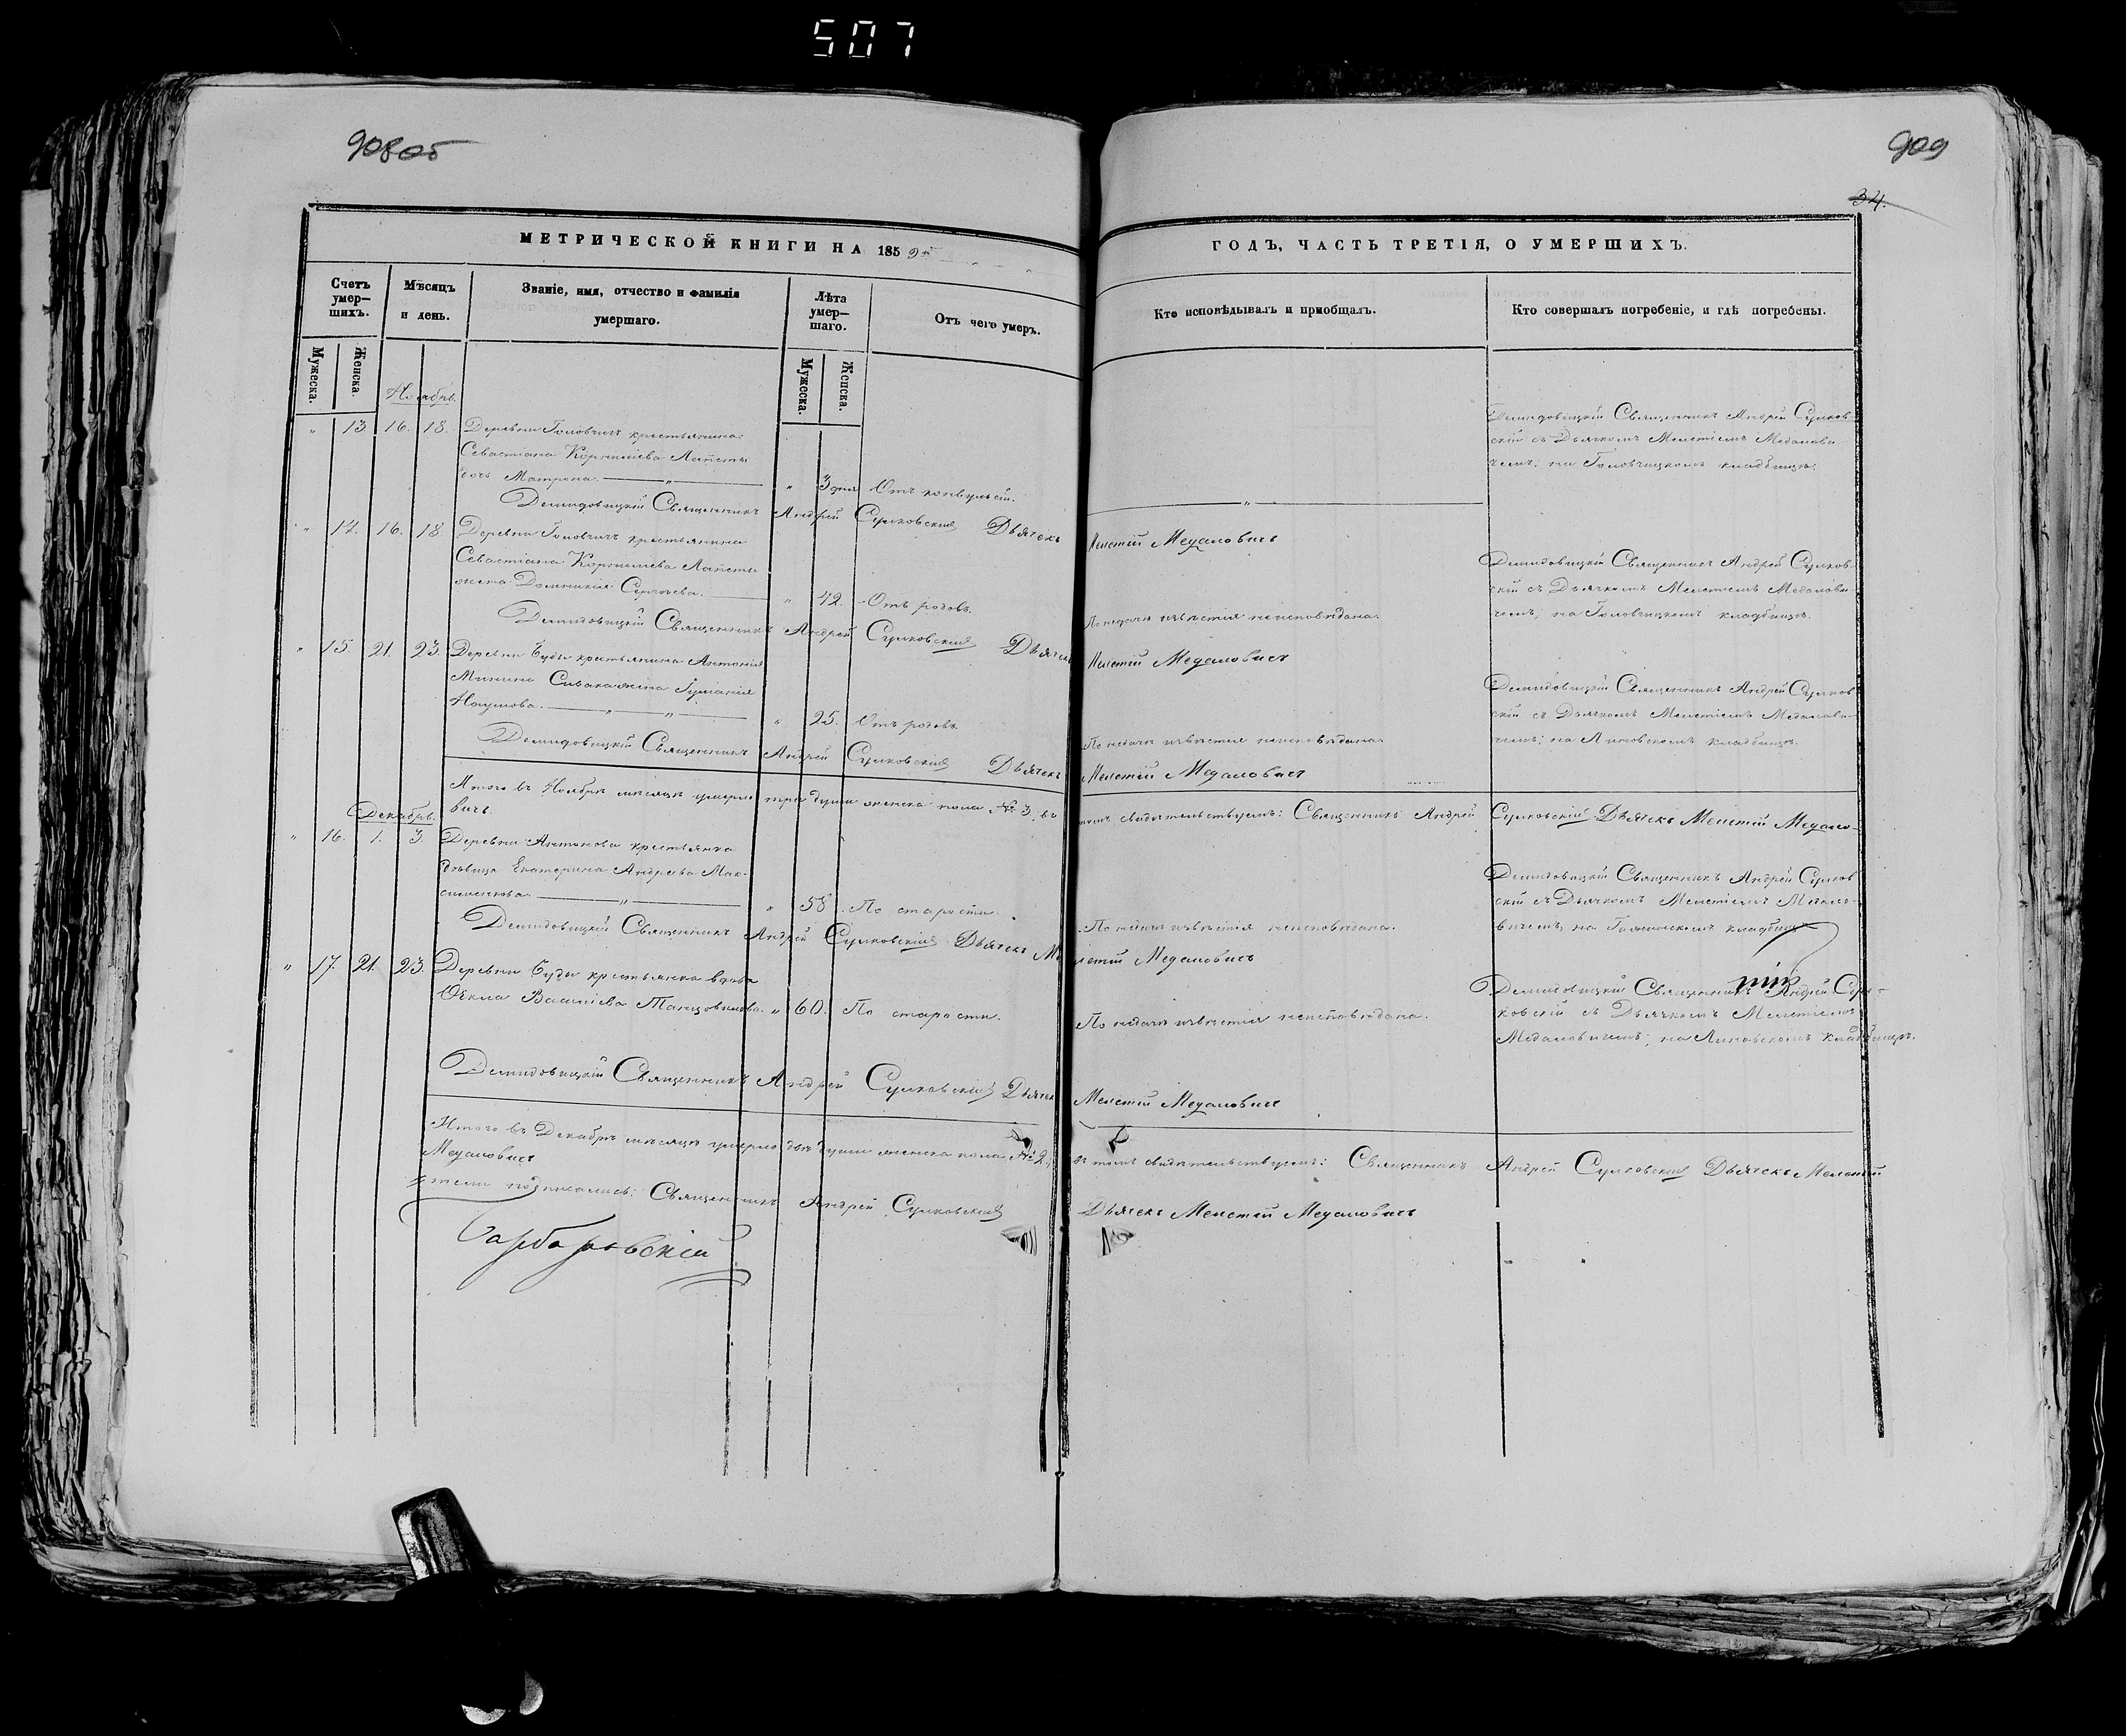 507
908об
909
34.
МЕТРИЧЕСКОЙ КНИГИ НА 1859й
ГОДЪ, ЧАСТЬ ТРЕТІЯ, О УМЕРШИХЪ.
Счетъ умер—шихъ.
Мѣсяцъ и день.
Званіе, имя, отчество и фамилія умершаго.
Лѣта умер—шаго.
Отъ чего умеръ.
Кто исповѣдывалъ и пріобщалъ.
Кто совершалъ погребеніе, и гдѣ погребены.
Мужеска.
Женска.
Мужеска.
Женска.
Ноябрь.
" 13 16. 18. Деревни Головчицъ крестьянина
Севастіана Корниліева Лапеты
дочь Матрона. " " 3 дня Отъ конвульсій. "
Демидовицкій Священникъ Андрей Сулков-
скій съ Дьячкомъ Мелетіемъ Медалови-
чемъ, на Головчицкомъ кладбищѣ.
Демидовицкій Священникъ Андрей Сулковскій Дьячекъ Мелетій Медаловичъ
" 14. 16. 18. Деревни Головчицъ крестьянина
Севастіана Корниліева Лапеты
жена Домникія Сергѣева. " 42. Отъ родовъ. По недачи извѣстія неисповѣдана.
Демидовицкій Священникъ Андрей Сулков-
скій съ Дьячкомъ Мелетіемъ Медалови-
чемъ, на Головчицкомъ кладбищѣ.
Демидовицкій Священникъ Андрей Сулковскій Дьячекъ Мелетій Медаловичъ
" 15. 21. 23. Деревни Буды крестьянина Антонія
Минина Сивака жена Гуліанія
Наумова. " " " 25. Отъ родовъ. По недачи извѣстія неисповѣдана.
Демидовицкій Священникъ Андрей Сулков-
скій съ Дьячкомъ Мелетіемъ Медалови-
чемъ; на Липовскомъ кладбищѣ.
Демидовицкій Священникъ Андрей Сулковскій Дьячекъ Мелетій Медаловичъ
Итого въ Ноябрѣ мѣсяцѣ умерло три души женска пола № 3, въ томъ свидѣтельствуемъ: Священникъ Андрей Сулковскій Дьячекъ Мелетій Медало-
вичъ.
Декабрь.
" 16. 1. 3. Деревни Антонова крестьянка
дѣвица Екатерина Андреева Мак-
сименкова. " " 58. По старости. По недачи извѣстія неисповѣдана.
Демидовицкій Священникъ Андрей Сулков-
скій съ Дьячкомъ Мелетіемъ Медало-
вичемъ, на кладбищѣ
Демидовицкій Священникъ Андрей Сулковскій Дьячекъ Мелетій Медаловичъ
" 17. 21. 23. Деревни Буды крестьянка вдова
Ѳекла Василіева " 60. По старости. По недачи извѣстія неисповѣдана.
Демидовицкій Священникъ Андрей Сул-
ковскій съ Дьячкомъ Мелетіемъ
Медаловичемъ; на Липовскомъ кладбищѣ.
Демидовицкій Священникъ Андрей Сулковскій Дьячекъ Мелетій Медаловичъ
Итого въ Декабрѣ мѣсяцѣ умерло двѣ души женска пола № 2, въ томъ свидѣтельствуемъ: Священникъ Андрей Сулковскій Дьячекъ Мелетій
Медаловичъ
подписались: Священникъ Андрей Сулковскій Дьячекъ Мелетій Медаловичъ